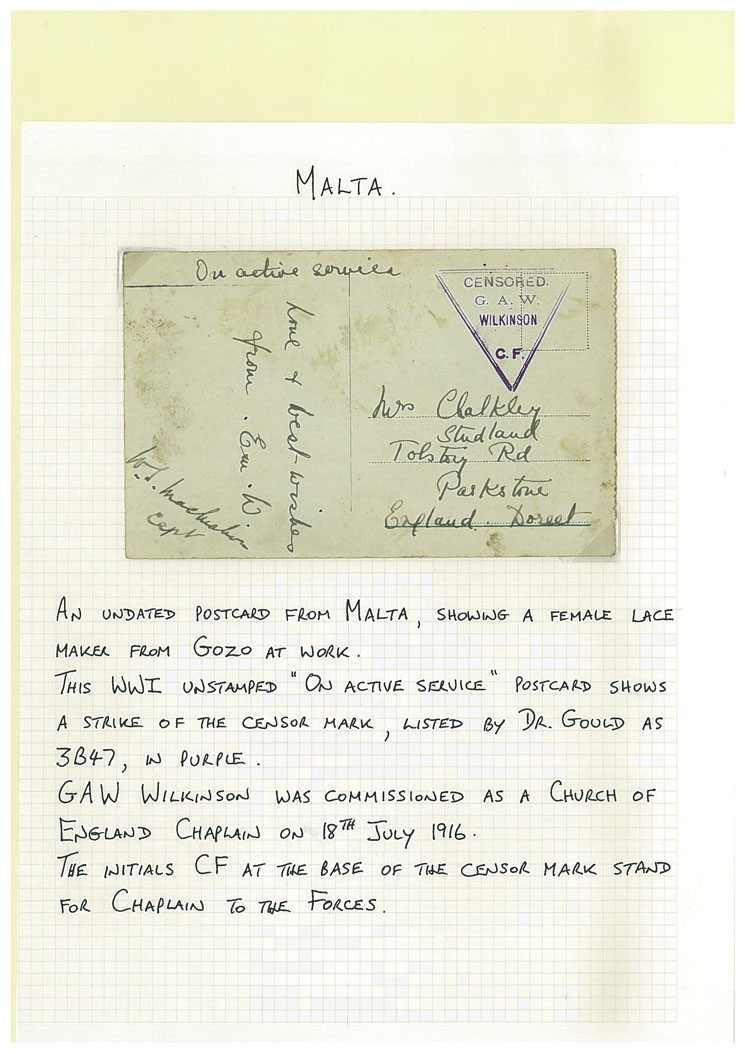 MALTA.
On active service
CENSORED.
G. A. W.
WILKINSON
C.F.
Love & best-wishes
from. Em. W
Mrs Chalkley
Studland
Tolstoy Rd
Parkstone
England. Dorset
Capt
AN UNDATED POSTCARD FROM MALTA, SHOWING A FEMALE LACE
MAKER FROM GOZO AT WORK.
THIS WWI UNSTAMPED "ON ACTIVE SERVICE" POSTCARD SHOWS
A STRIKE OF THE CENSOR MARK, LISTED BY DR. GOULD AS
3B47, IN PURPLE.
GAW WILKINSON WAS COMMISSIONED AS A CHURCH OF
ENGLAND CHAPLAIN ON 18TH JULY 1916.
THE INITIALS CF AT THE BASE OF THE CENSOR MARK STAND
FOR CHAPLAIN TO THE FORCES.